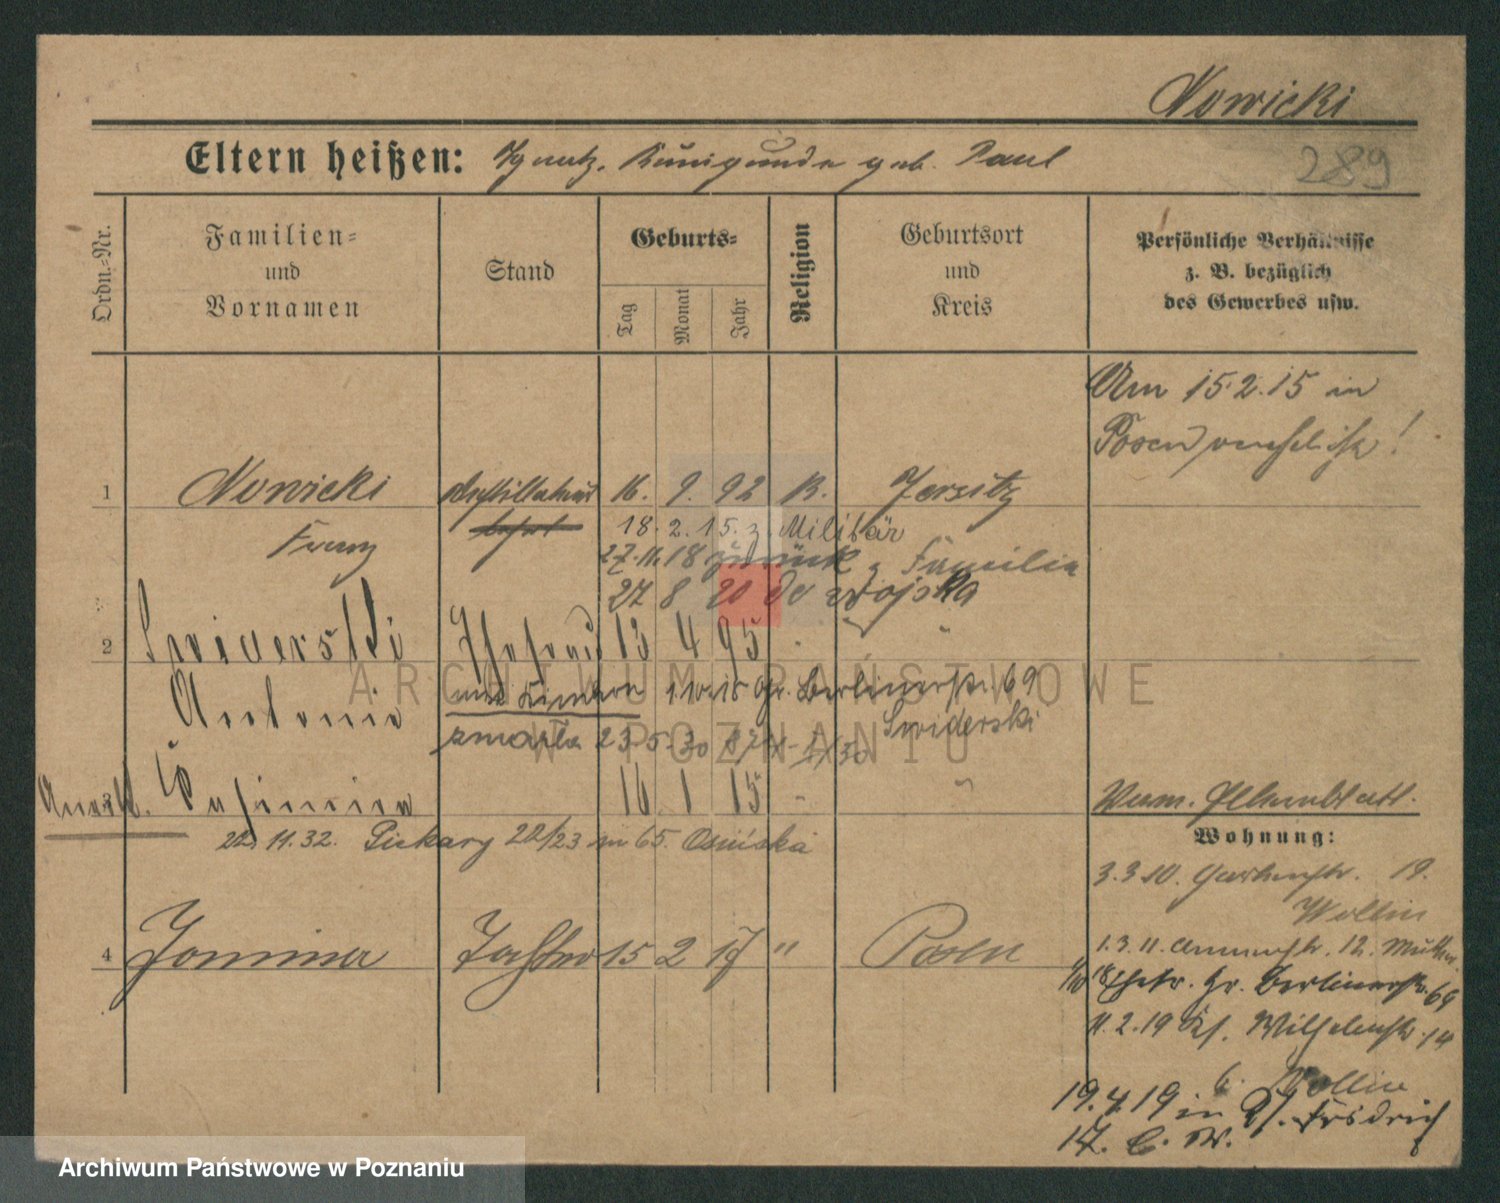 Nowicki
Eltern heißen: Ignatz, Kunigunde geb. Paul
289
Ordn.-Nr.
Familien-
und
Vornamen
Stand
Geburts-
Tag
Monat
Jahr
Religion
Geburtsort
und
Kreis
Persönliche Verhältnisse
z. B. bezüglich
des Gewerbes usw.
Am 15.2.15 in
Posen verehelicht!
1 Nowicki 16. 9. 92 K. Jersitz
Franz
18.2.15. z. Militär
27.11.18 zurück z. Familie
27 8 20 do wojska
2 Swiderski Ehefrau 13 4 95 - "
Antonie
und Kinder 1.10.18 Gr. Berlinerstr. 69
Swiderski
zmarła 23.5.30
Kasimira 16 1 15 - "
22.11.32. Piekary 22/23 m 65. Osińska
Wohnung:
3.3.10. Gartenstr. 19.
Wollin
4 Janina Tochter 15 2 17 " Posen
1.3.11. 12. Mutter
1/10 18 Ehefr. Gr. Berlinerstr. 69
11.2.19 Kg. Wilhelmstr. 14
b. Wollin
19.4.19 in
17. C. W.
ARCHIWUM PAŃSTWOWE
W POZNANIU
Archiwum Państwowe w Poznaniu